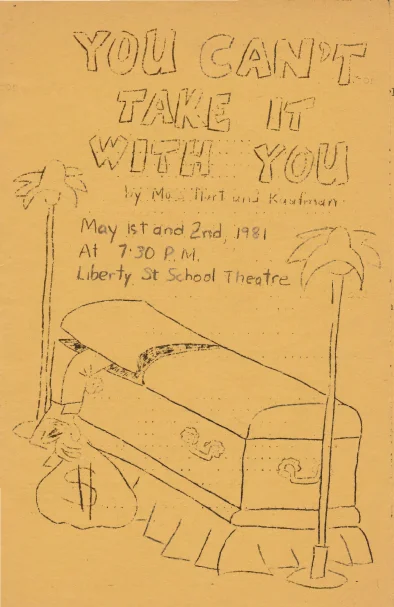 YOU CAN'T
TAKE IT
WITH YOU
by Moss Hart and Kaufman
May 1st and 2nd, 1981
At 7:30 P.M.
Liberty St School Theatre
$